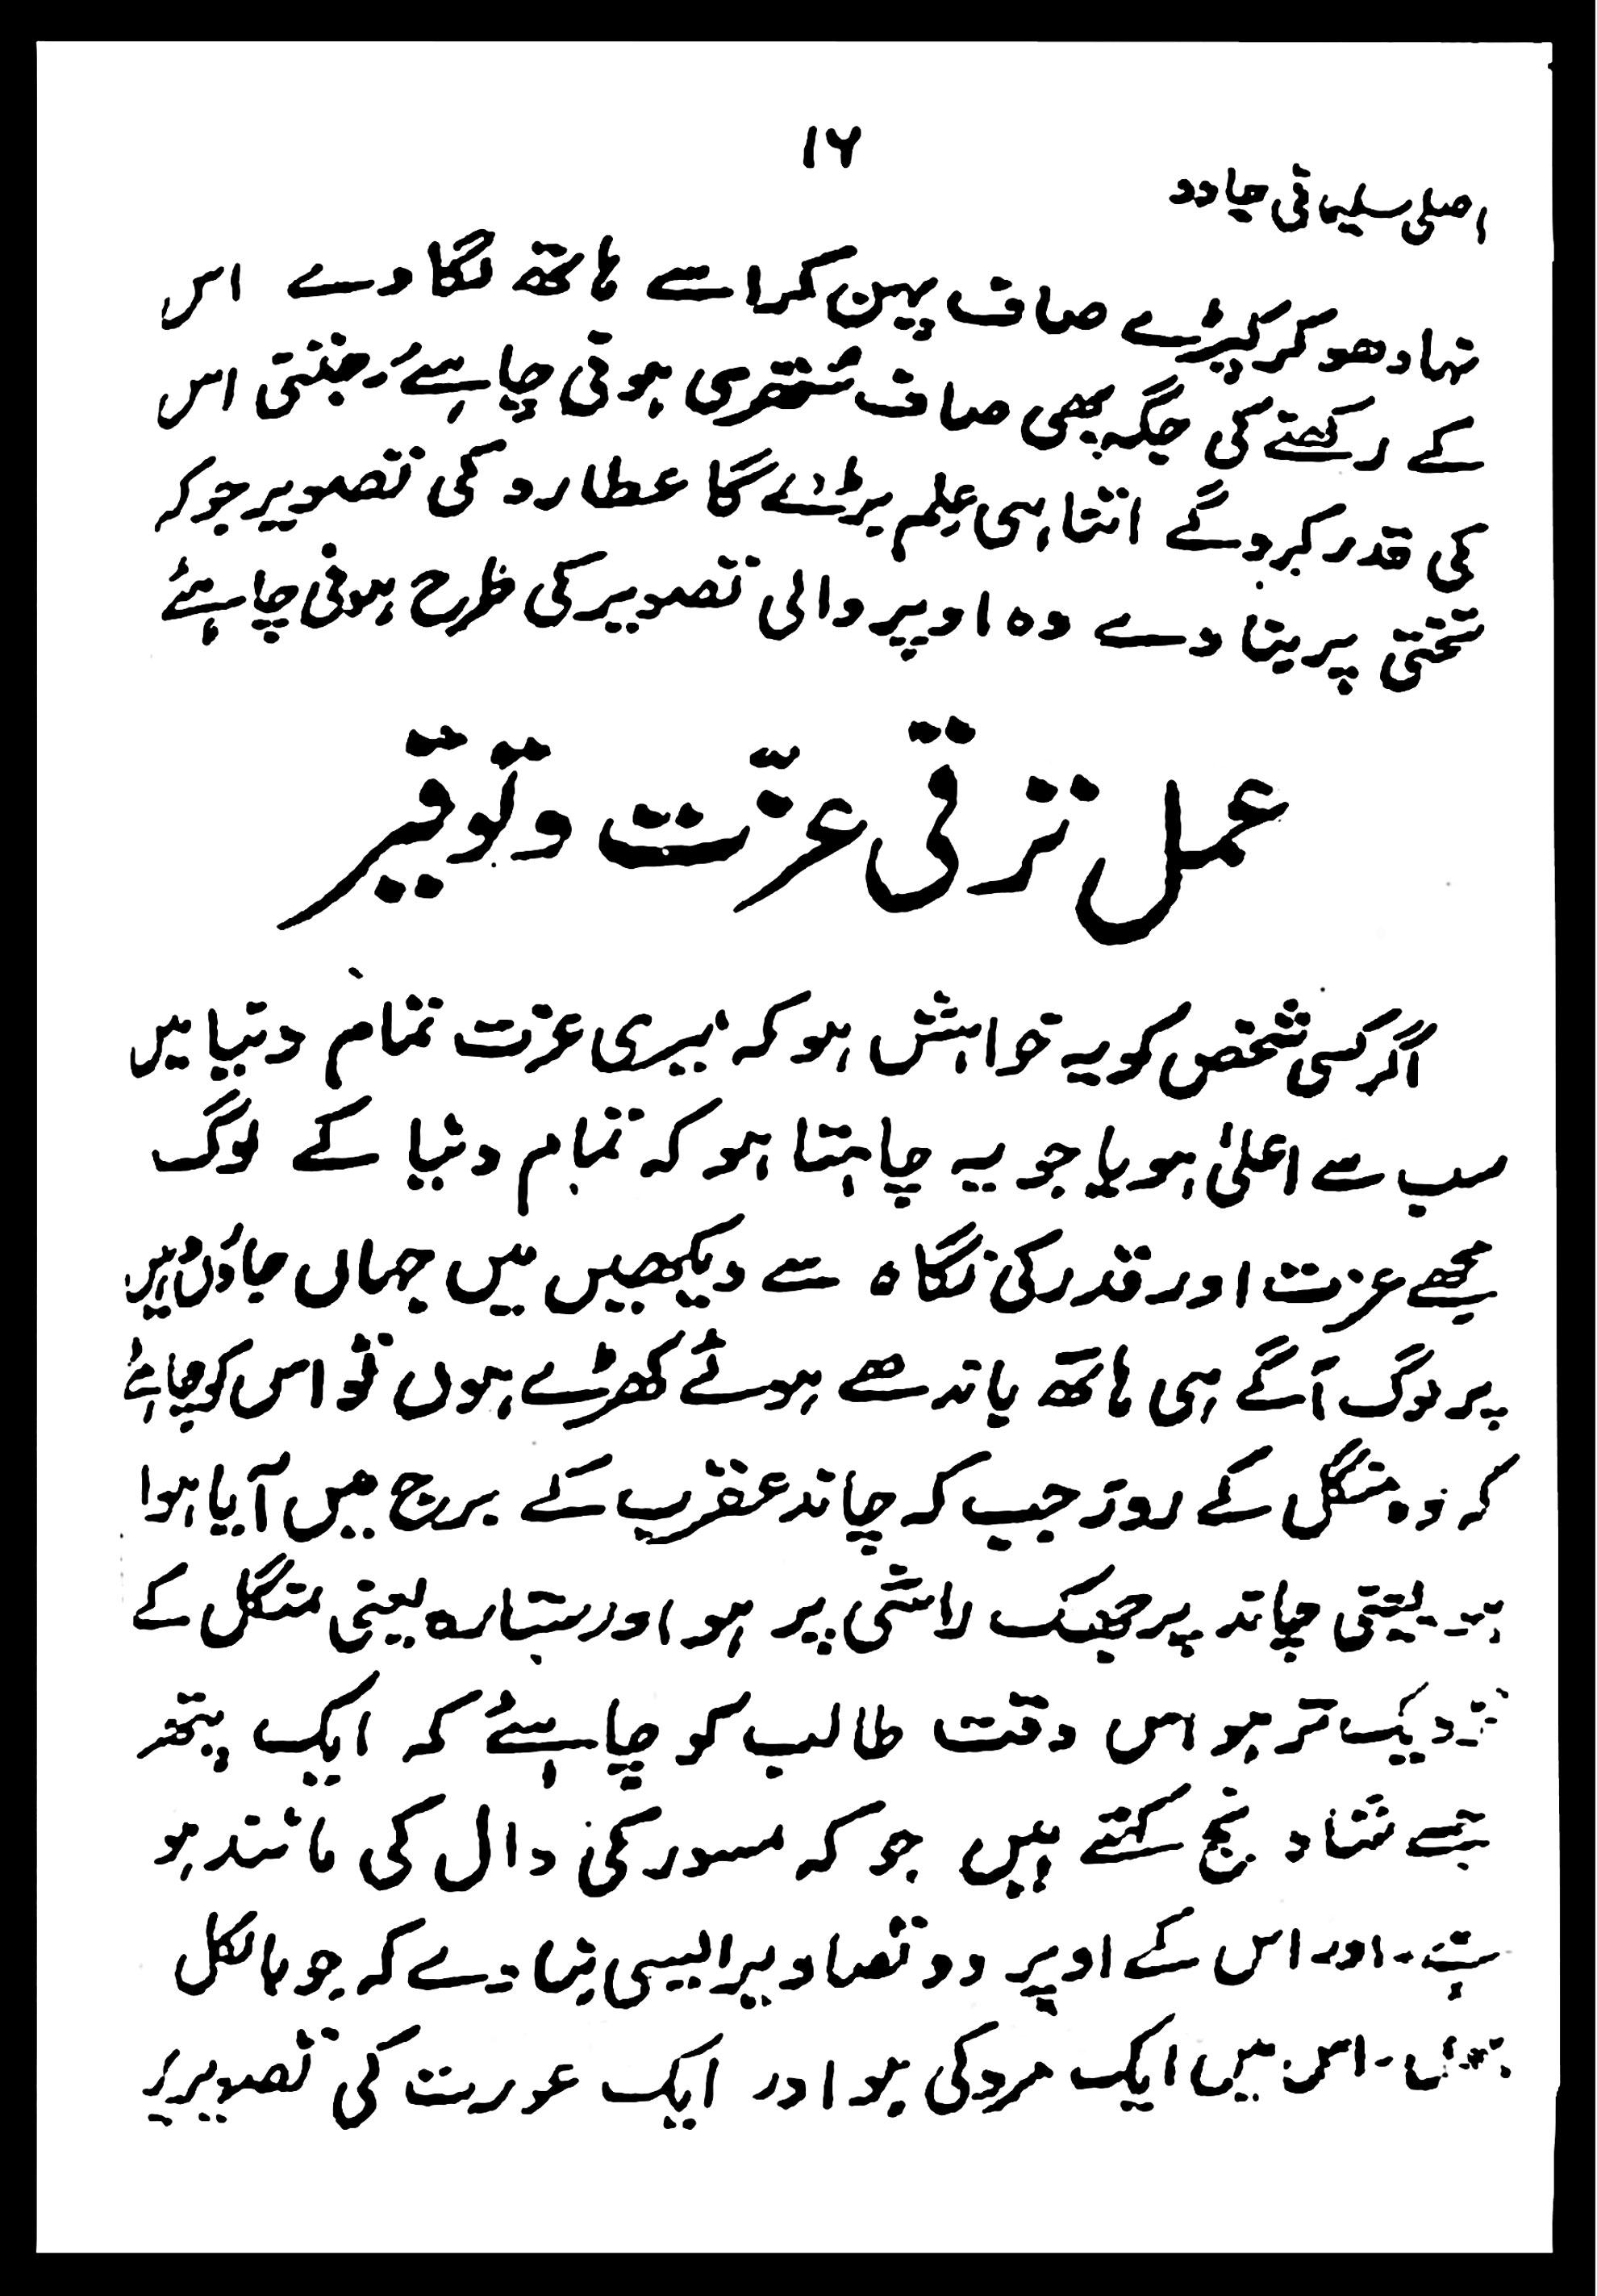 ۱۶
اصلی سلیمانی جادو
نہا دھو کر کپڑے صاف پہن کر اسے ہاتھ لگا دے اس
کے رکھنے کی جگہ بھی صاف ستھری ہونی چاہئے جتنی اس
کی قدر کرو گے اتنا ہی علم بڑے گا عطارد کی تصویر جو کہ
تختی پر بنا دے وہ اوپر والی تصویر کی طرح ہونی چاہئے
عمل ترقی عزّت و توقیر
اگر کسی شخص کو یہ خواہش ہو کہ میری عزت تمام دنیا میں
سب سے اعلیٰ ہو یا جو یہ چاہتا ہو کہ تمام دنیا کے لوگ
مجھے عزت اور قدر کی نگاہ سے دیکھیں میں جہاں جاؤں
پر لوگ آگے ہی ہاتھ باندھے ہوئے کھڑے ہوں تو اس کو چاہئے
کہ وہ منگل کے روز جب کہ چاند عقرب کے برج میں آیا ہوا
ہو۔ یعنی چاند برچھیک راشی پر ہو اور ستارہ یعنی منگل کے
نزدیک تر ہو اس وقت طالب کو چاہئے کہ ایک پتھر
جسے شادنج کہتے ہیں جو کہ مسور کی دال کی مانند ہو
اور اس کے اوپر دو تصاویر ایسی بنا دے کہ جو بالکل
اس میں ایک مرد کی ہو اور ایک عورت کی تصویر